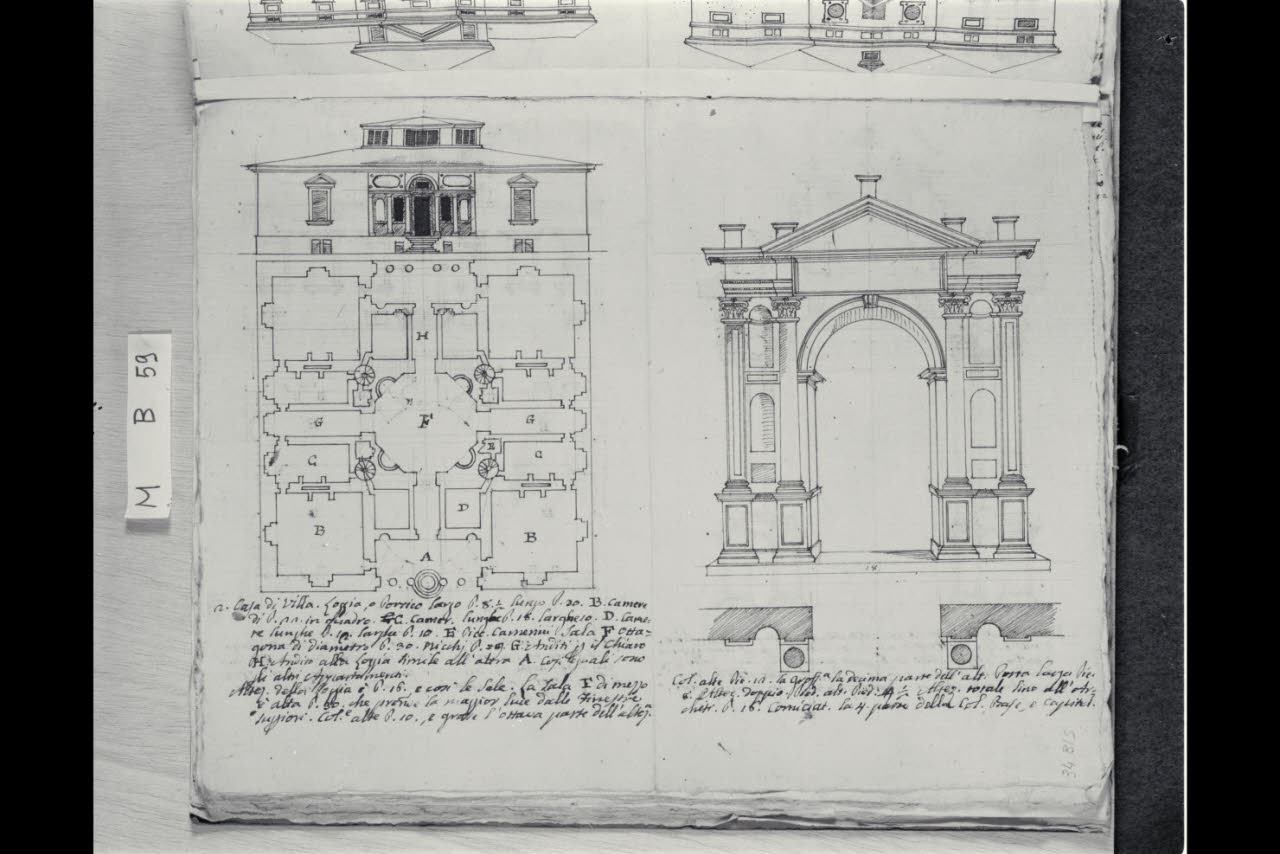 M B 59
H
F
G
G
C
E
G
B
D
B
A
2. Casa di Villa. Loggia, o Portico largo P. 8.½ lungo P. 20. B. Camere
di P. in quadro. C. Camer. lunghe P. 18. larghe 10. D. Came=
re lunghe P. 12. larghe P. 10. E Picc. Camerini. Sala F otta=
gona di diametro P. 30. Nicchj P. G. Anditi
H. Andito alla Loggia simile all'altra A. Cosi Equali sono
li altri Appartamenti.
Altez. della Loggia è P. 16. e cosi le Sale. La Sala F di mezo
è alta P. che prende la maggior luce dalle Finestre
superiori. Col.e alte P. 10. e grosse l'ottava parte dell'altez.a
18
Col. alte Pie. la gross.a la decima parte dell'alt. Porta larga Pie.
8. L'altez. doppio. Pied. alt. Pied. 4 ½ Altez. totale sino all'
P. 18. Corniciat. la 4 parte della Col. Base, e Capitel.
34 815